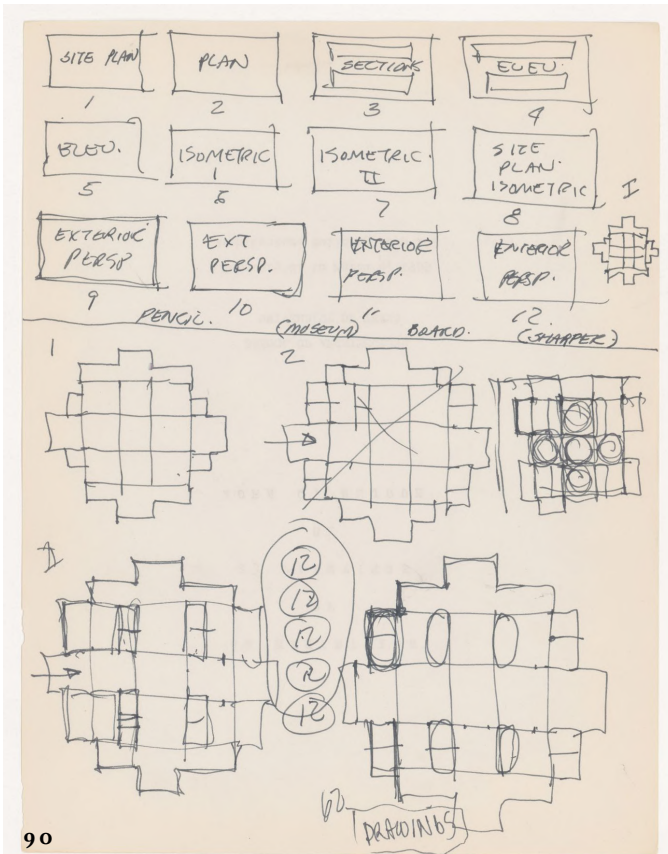 SITE PLAN
PLAN
SECTIONS
ELEV.
1
2
3
4
ELEV.
ISOMETRIC
I
ISOMETRIC.
II
SITE
PLAN.
ISOMETRIC
5
6
7
8
I
EXTERIOR
PERSP
EXT
PERSP.
INTERIOR
PERSP.
INTERIOR
PERSP.
9
10
11
12.
PENCIL. (MUSEUM) BOARD. (SHARPER)
1
2
12
12
12
12
12
60
DRAWINGS
90